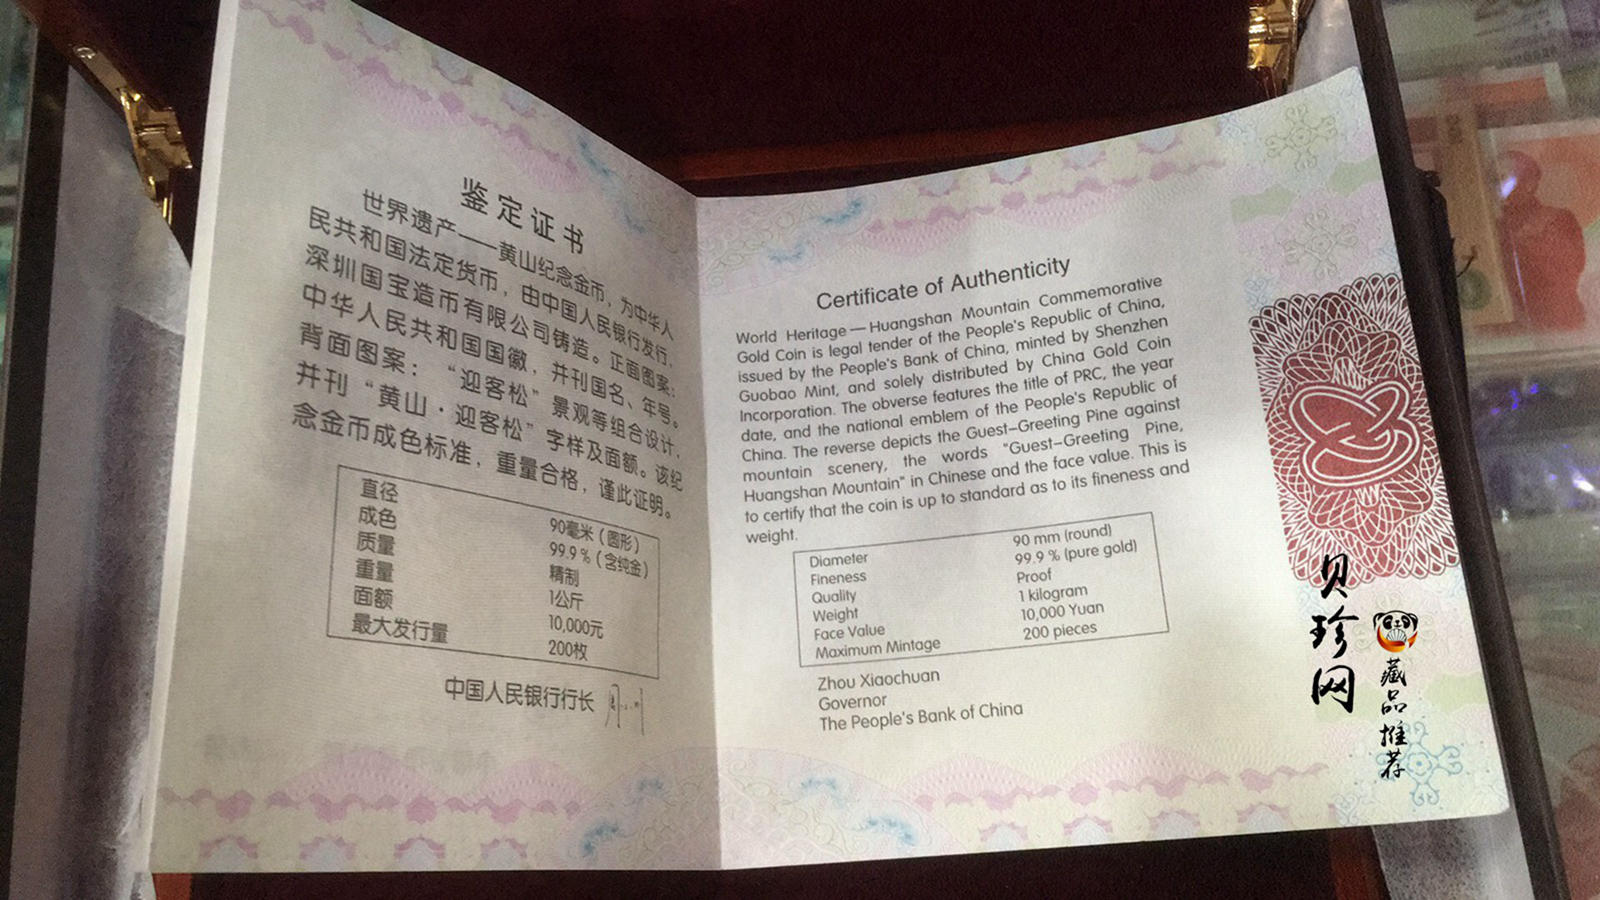 鉴定证书
世界遗产——黄山纪念金币，为中华人
民共和国法定货币，由中国人民银行发行，
深圳国宝造币有限公司铸造。正面图案：
中华人民共和国国徽，并刊国名、年号。
背面图案：“迎客松”景观等组合设计，
并刊“黄山·迎客松”字样及面额。该纪
念金币成色标准，重量合格，谨此证明。
直径 90毫米（圆形）
成色 99.9%（含纯金）
质量 精制
重量 1公斤
面额 10,000元
最大发行量 200枚
中国人民银行行长
Certificate of Authenticity
World Heritage — Huangshan Mountain Commemorative
Gold Coin is legal tender of the People's Republic of China,
issued by the People's Bank of China, minted by Shenzhen
Guobao Mint, and solely distributed by China Gold Coin
Incorporation. The obverse features the title of PRC, the year
date, and the national emblem of the People's Republic of
China. The reverse depicts the Guest-Greeting Pine against
mountain scenery, the words "Guest-Greeting Pine,
Huangshan Mountain" in Chinese and the face value. This is
to certify that the coin is up to standard as to its fineness and
weight.
Diameter 90 mm (round)
Fineness 99.9 % (pure gold)
Quality Proof
Weight 1 kilogram
Face Value 10,000 Yuan
Maximum Mintage 200 pieces
Zhou Xiaochuan
Governor
The People's Bank of China
贝珍网
藏品推荐